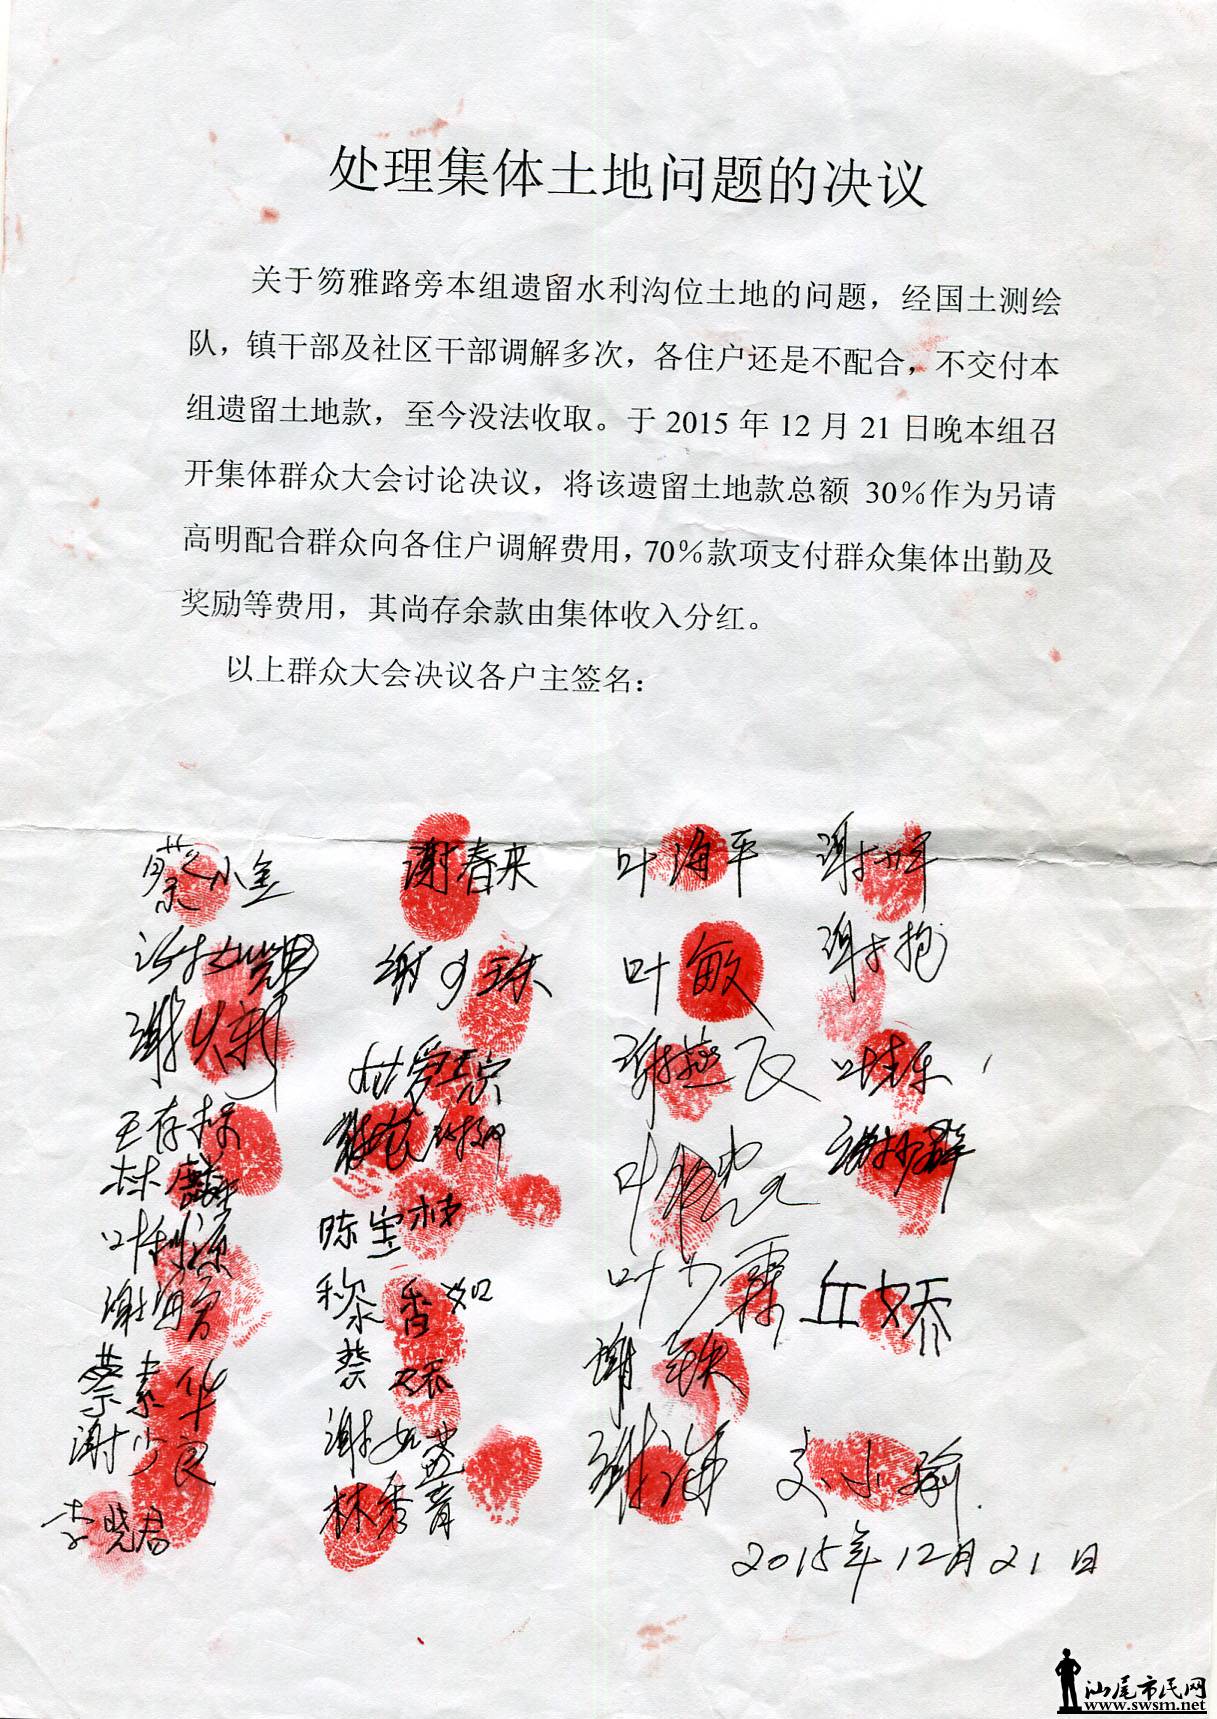 处理集体土地问题的决议
关于笏雅路旁本组遗留水利沟位土地的问题，经国土测绘
队，镇干部及社区干部调解多次，各住户还是不配合，不交付本
组遗留土地款，至今没法收取。于 2015 年 12 月 21 日晚本组召
开集体群众大会讨论决议，将该遗留土地款总额 30%作为另请
高明配合群众向各住户调解费用，70%款项支付群众集体出勤及
奖励等费用，其尚存余款由集体收入分红。
以上群众大会决议各户主签名：
蔡小金 谢春来 叶海平
谢少珠 叶敏 谢抱
谢燕飞
王存标
林
叶利源 陈宝林
谢 黎香如 叶少霖 丘娇
蔡素华 谢铁
谢少良 谢 谢海 小瑜
李晓君 林秀青
2015年12月21日
汕尾市民网
www.swsm.net